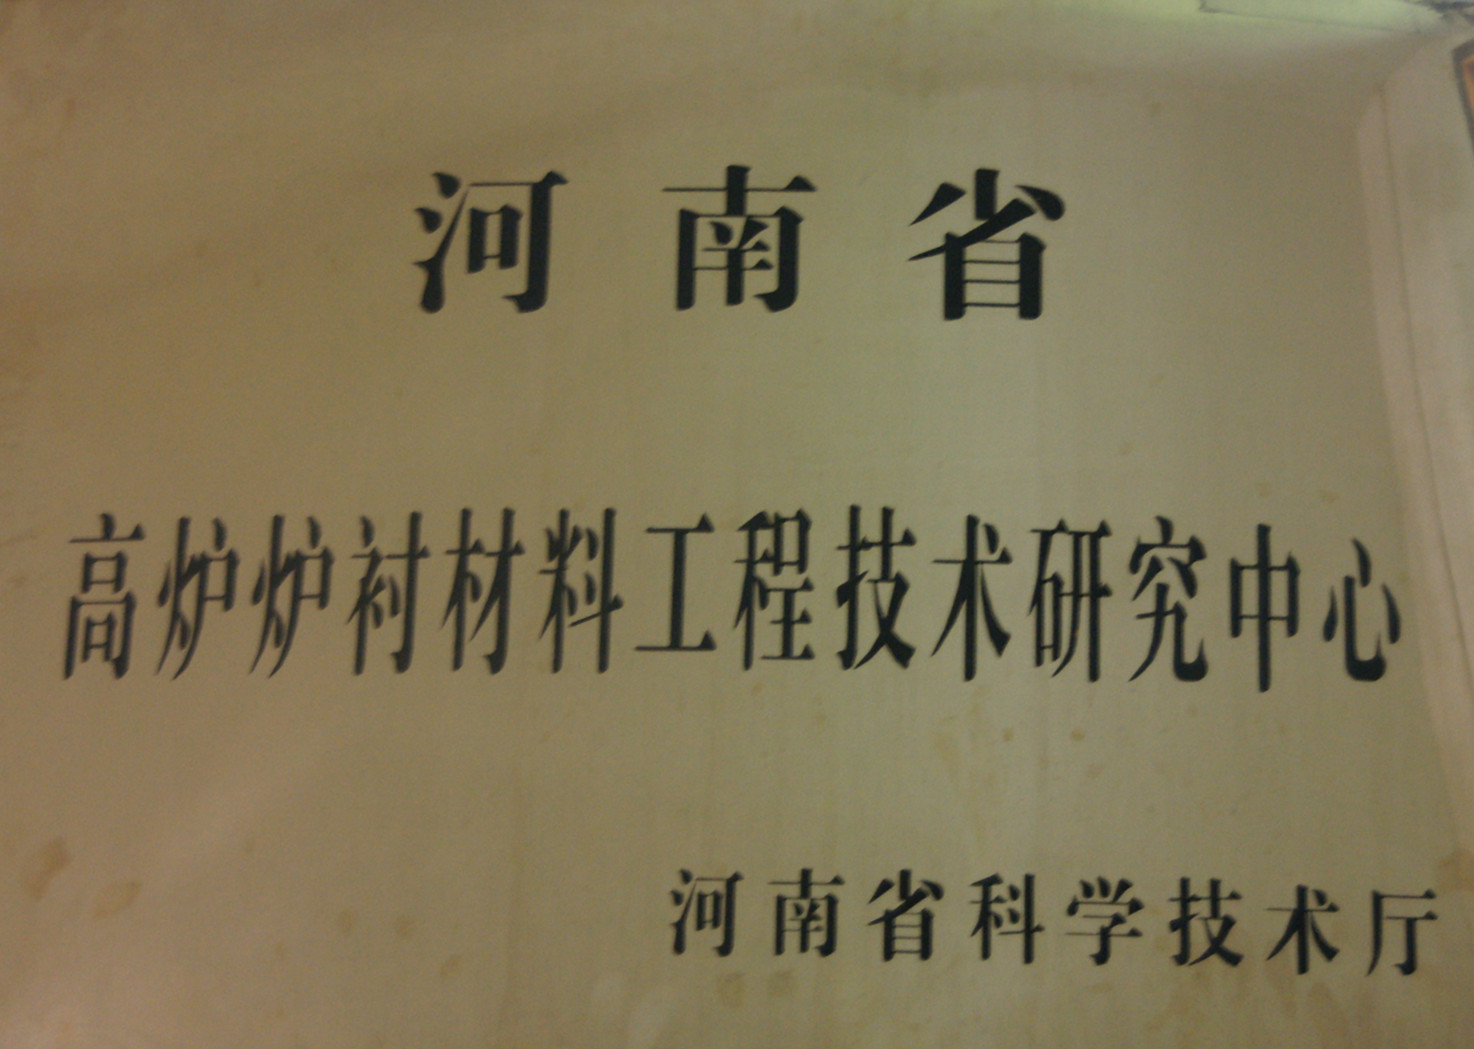 河南省
高炉炉衬材料工程技术研究中心
河南省科学技术厅